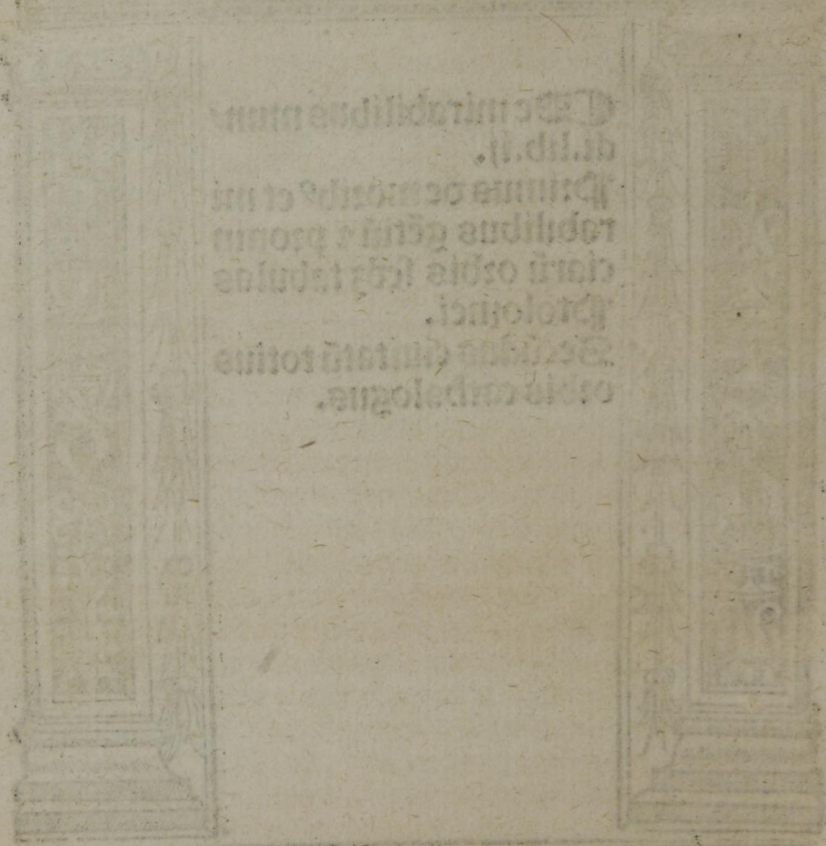 De mirabilibus mun
di. lib. ij.
Primus de moribꝰ et mi
rabilibus gētiū ⁊ prouin
ciarū orbis fcḋꝫ tabulas
Ptolomei.
Secūdus ciuitatū totius
orbis cathalogus.